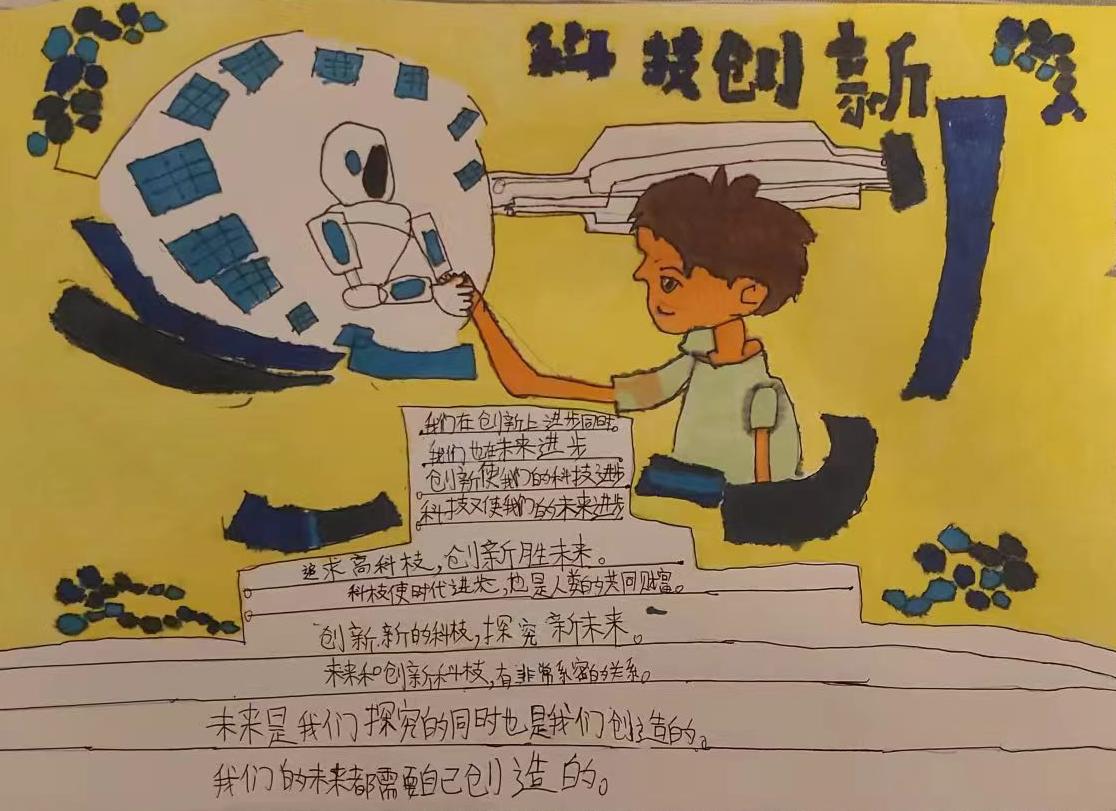 科技创新
我们在创新上进步同时。
我们也在未来进步
创新使我们的科技进步
科技又使我们的未来进步
追求高科枝,创新胜未来。
科枝使时代进步,也是人类的共同财富。
创新.新的科枝,探究新未来。
未来和创新科技,有非常系密的关系。
未来是我们探究的同时也是我们创造的。
我们的未来都需要自己创造的。